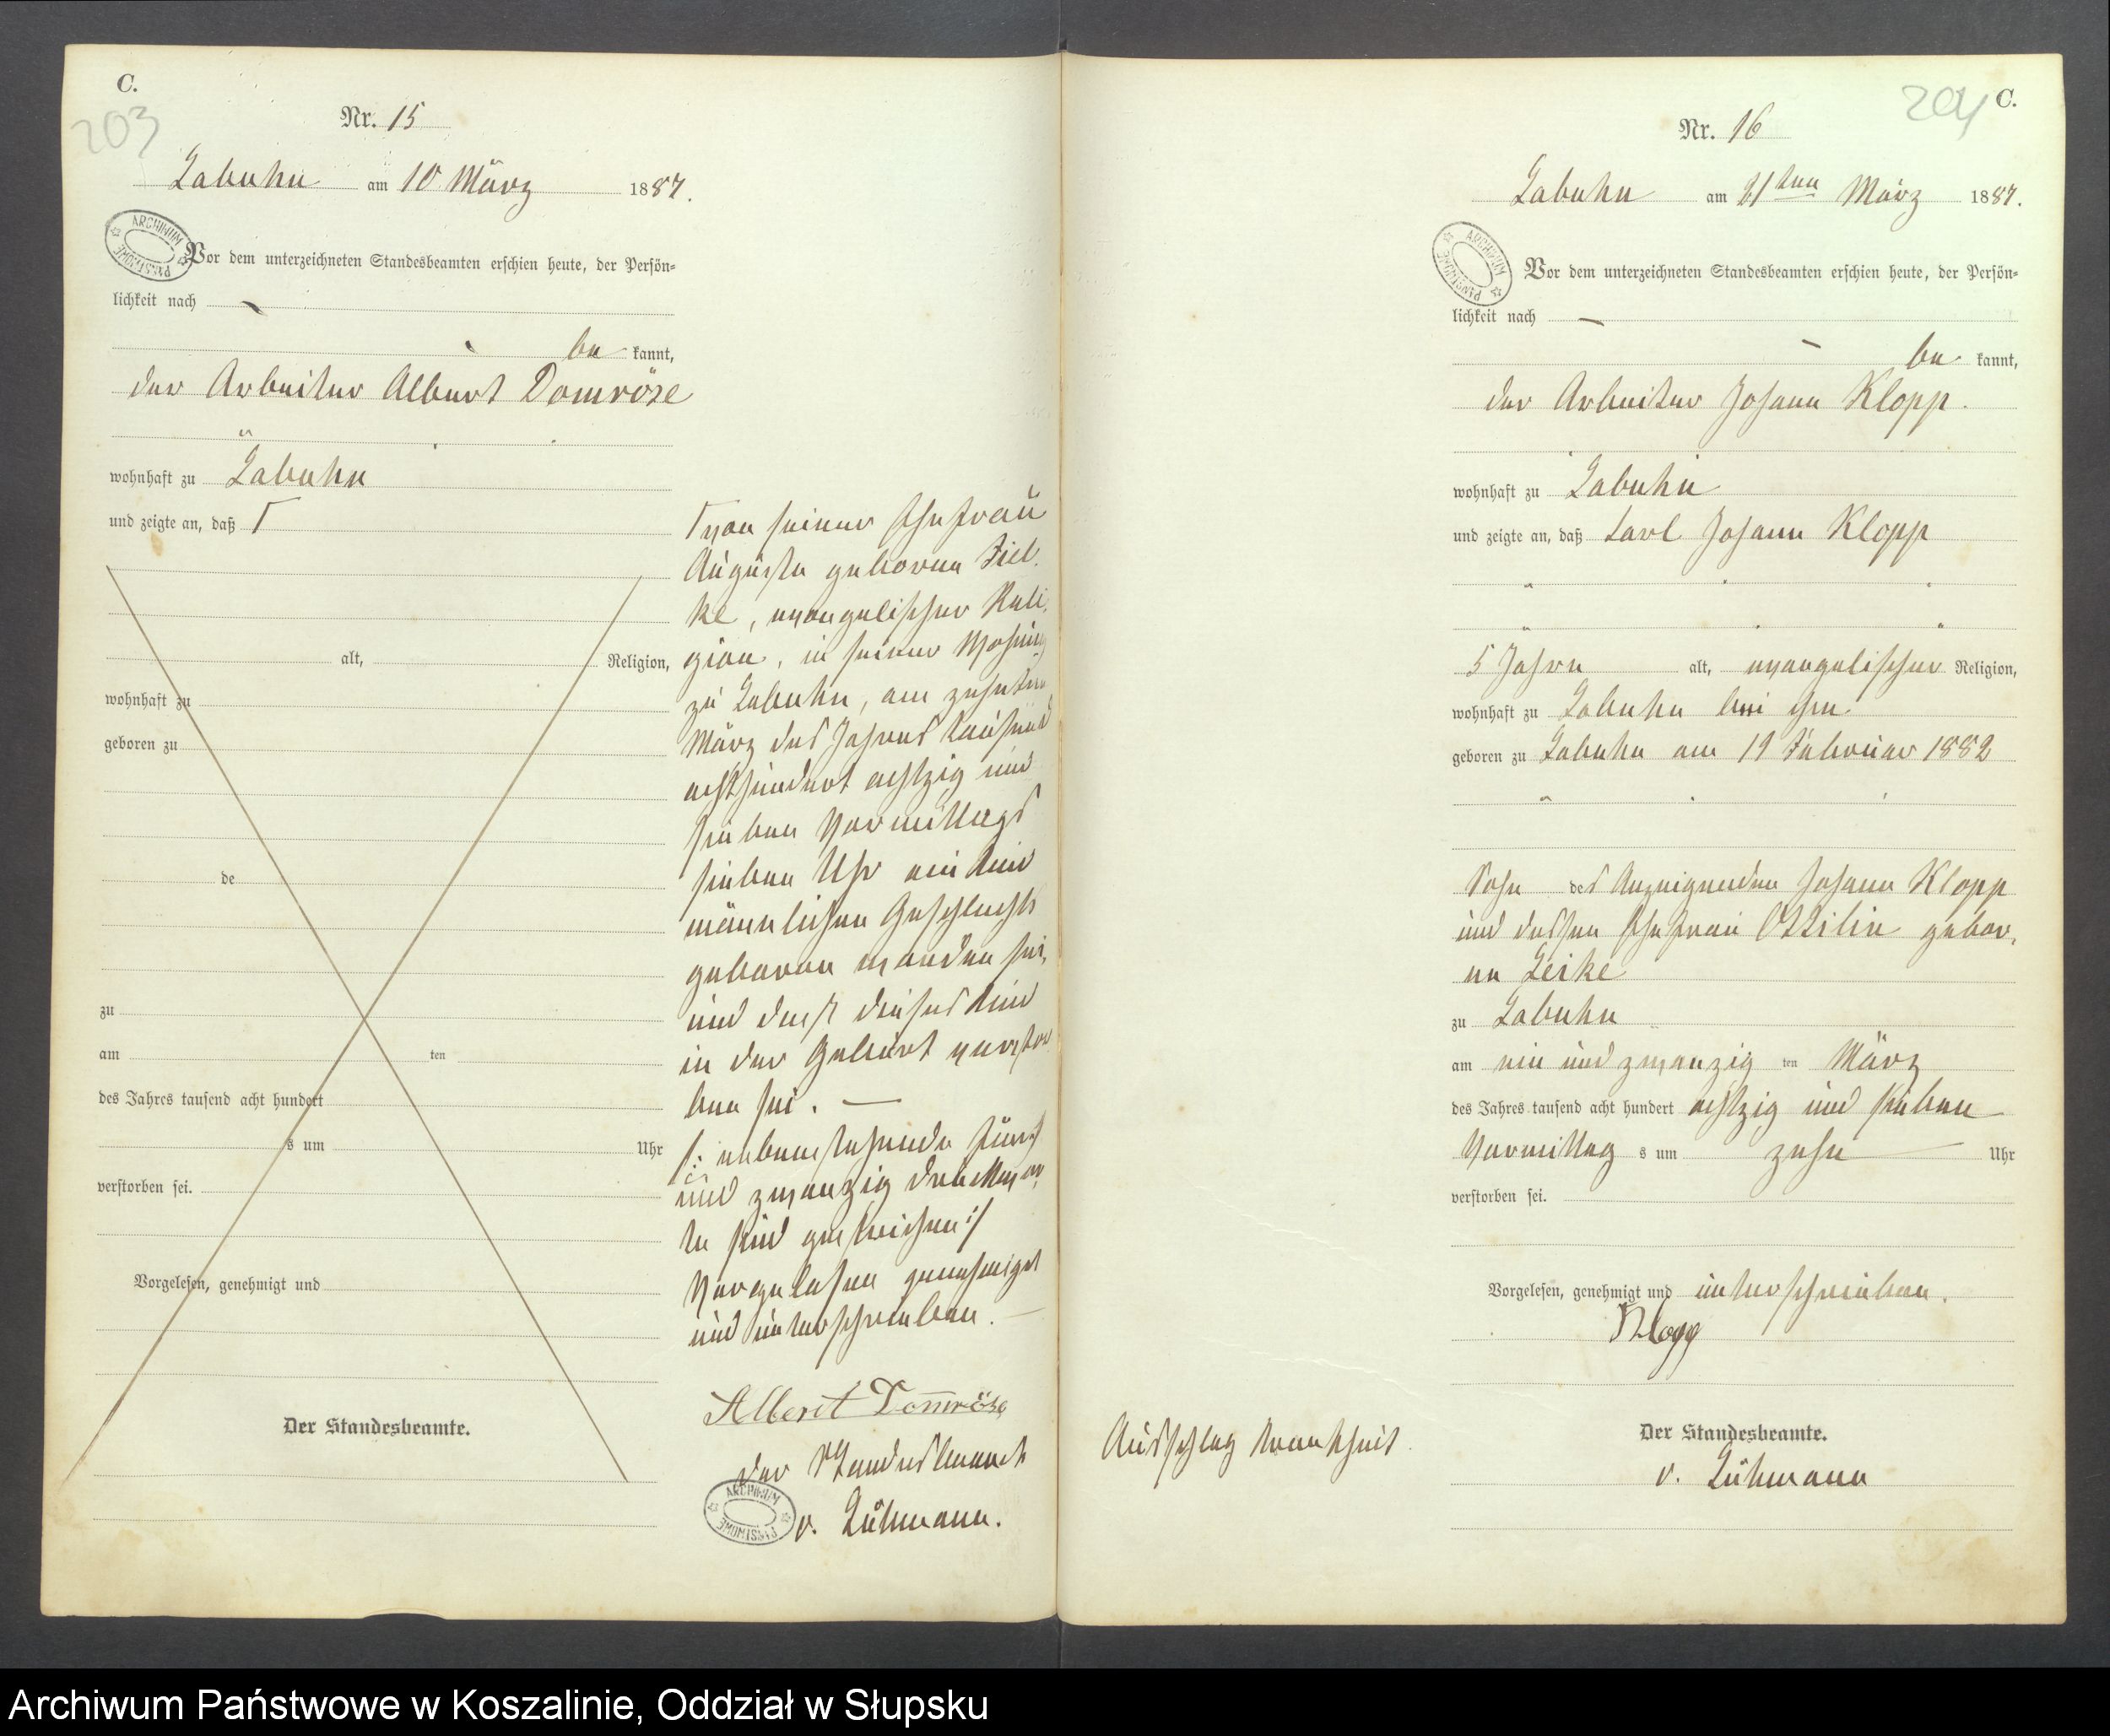 C.
203
Nr. 15
Labuhn am 10 März 1887.
ARCHIWUM PAŃSTWOWE
Vor dem unterzeichneten Standesbeamten erschien heute, der Persön=
lichkeit nach
be kannt,
der Arbeiter Albert Domröse
wohnhaft zu Labuhn
und zeigte an, daß Γ
alt, Religion,
wohnhaft zu
geboren zu
de
zu
am ten
des Jahres tausend acht hundert
s um Uhr
verstorben sei.
Vorgelesen, genehmigt und
Der Standesbeamte.
Γ von seiner Ehefrau
Auguste geboren Ziel-
ke, evangelischer Reli-
gion, in seiner Wohnung
zu Labuhn, am zehnten
März des Jahres tausend
achthundert achtzig und
sieben Vormittags
sieben Uhr ein Kind
männlichen Geschlechts
geboren worden sei,
und daß dieses Kind
in der Geburt verstor
ben sei. —
/: nebenstehende fünf
und zwanzig Druckwor
te sind gestrichen :/
Vorgelesen genehmigt
und unterschrieben. —
Albert Domröse
der Standesbeamte
ARCHIWUM PAŃSTWOWE
v. Lühmann.
204
C.
Nr. 16
Labuhn am 21ten März 1887.
ARCHIWUM PAŃSTWOWE
Vor dem unterzeichneten Standesbeamten erschien heute, der Persön=
lichkeit nach —
be kannt,
der Arbeiter Johann Klopp.
wohnhaft zu Labuhn
und zeigte an, daß Carl Johann Klopp
5 Jahre alt, evangelischer Religion,
wohnhaft zu Labuhn bei ihm
geboren zu Labuhn am 19 Februar 1882
Sohn des Anzeigenden Johann Klopp
und dessen Ehefrau Ottilie gebor,
ne Leike
zu Labuhn
am ein und zwanzig ten März
des Jahres tausend acht hundert achtzig und sieben
Vormittag s um zehn Uhr
verstorben sei.
Vorgelesen, genehmigt und unterschrieben.
Klopp
Ausschlag Krankheit
Der Standesbeamte.
v. Lühmann
Archiwum Państwowe w Koszalinie, Oddział w Słupsku